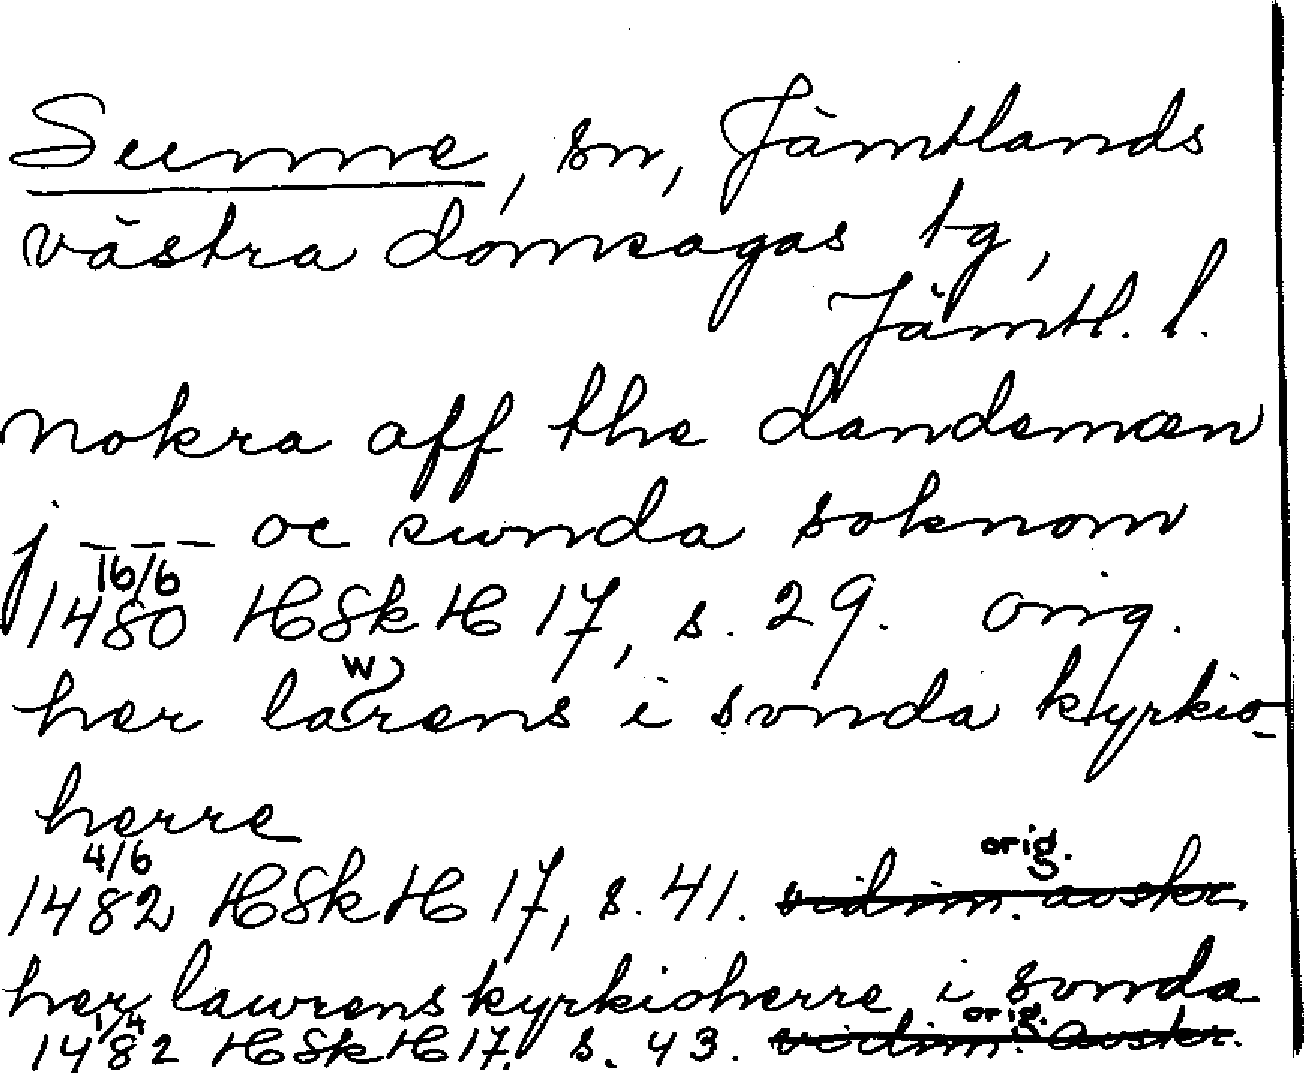 Sunne, sn, Jämtlands
västra domsagas tg,
Jämtl. l.
nokra aff the dandemæn
j --- oc swnda soknom
16/6
1480 HSkH 17, s. 29. orig.
her lawrens i svnda kyrkio-
herre
4/6
1482 HSkH 17, s. 41. orig. vidim. avskr.
her lawrens kyrkioherre i svnda
1/4
1482 HSkH 17, s. 43. orig. vidim. avskr.